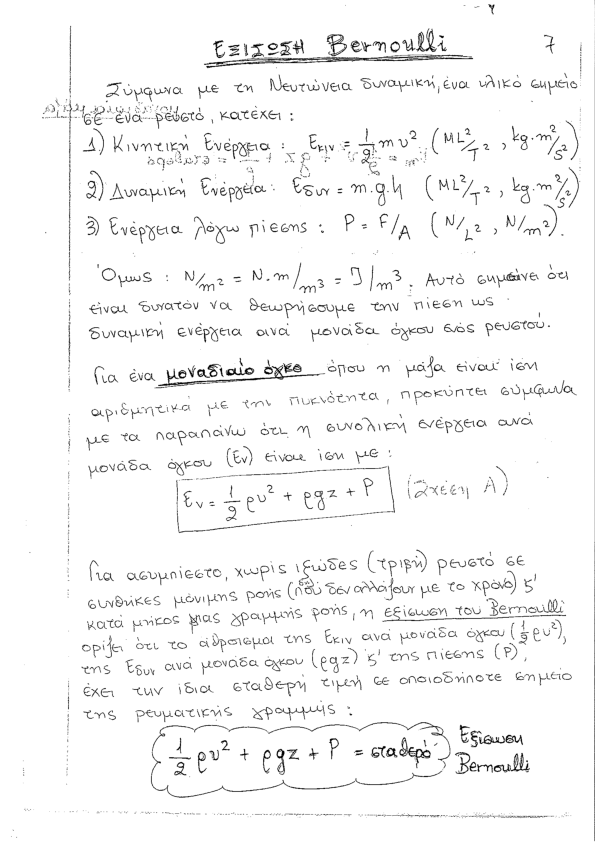 ΕΞΙΣΩΣΗ Bernoulli 7
Σύμφωνα με τη Νευτώνεια δυναμική, ένα υλικό σημείο
σε ένα ρευστό, κατέχει:
1) Κινητική Ενέργεια: Εκιν = 1/2 mυ² (ML²/T², kg.m²/s²)
2) Δυναμική Ενέργεια: Εδυν = m.g.h (ML²/T², kg.m²/s²)
3) Ενέργεια λόγω πίεσης: P = F/A (N/L², N/m²).
Όμως: N/m² = N.m/m³ = J/m³. Αυτό σημαίνει ότι
είναι δυνατόν να θεωρήσουμε την πίεση ως
δυναμική ενέργεια ανά μονάδα όγκου ενός ρευστού.
Για ένα μοναδιαίο όγκο όπου η μάζα είναι ίση
αριθμητικά με την πυκνότητα, προκύπτει σύμφωνα
με τα παραπάνω ότι η συνολική ενέργεια ανά
μονάδα όγκου (Εv) είναι ίση με:
Εv = 1/2 ρυ² + ρgz + P (Σχέση Α)
Για ασυμπίεστο, χωρίς ιξώδες (τριβή) ρευστό σε
συνθήκες μόνιμης ροής (που δεν αλλάζουν με το χρόνο) κ'
κατά μήκος μιας γραμμής ροής, η εξίσωση του Bernoulli
ορίζει ότι το άθροισμα της Εκιν ανά μονάδα όγκου (1/2 ρυ²),
της Εδυν ανά μονάδα όγκου (ρgz) κ' της πίεσης (P),
έχει την ίδια σταθερή τιμή σε οποιοδήποτε σημείο
της ρευματικής γραμμής:
1/2 ρυ² + ρgz + P = σταθερό Εξίσωση
Bernoulli